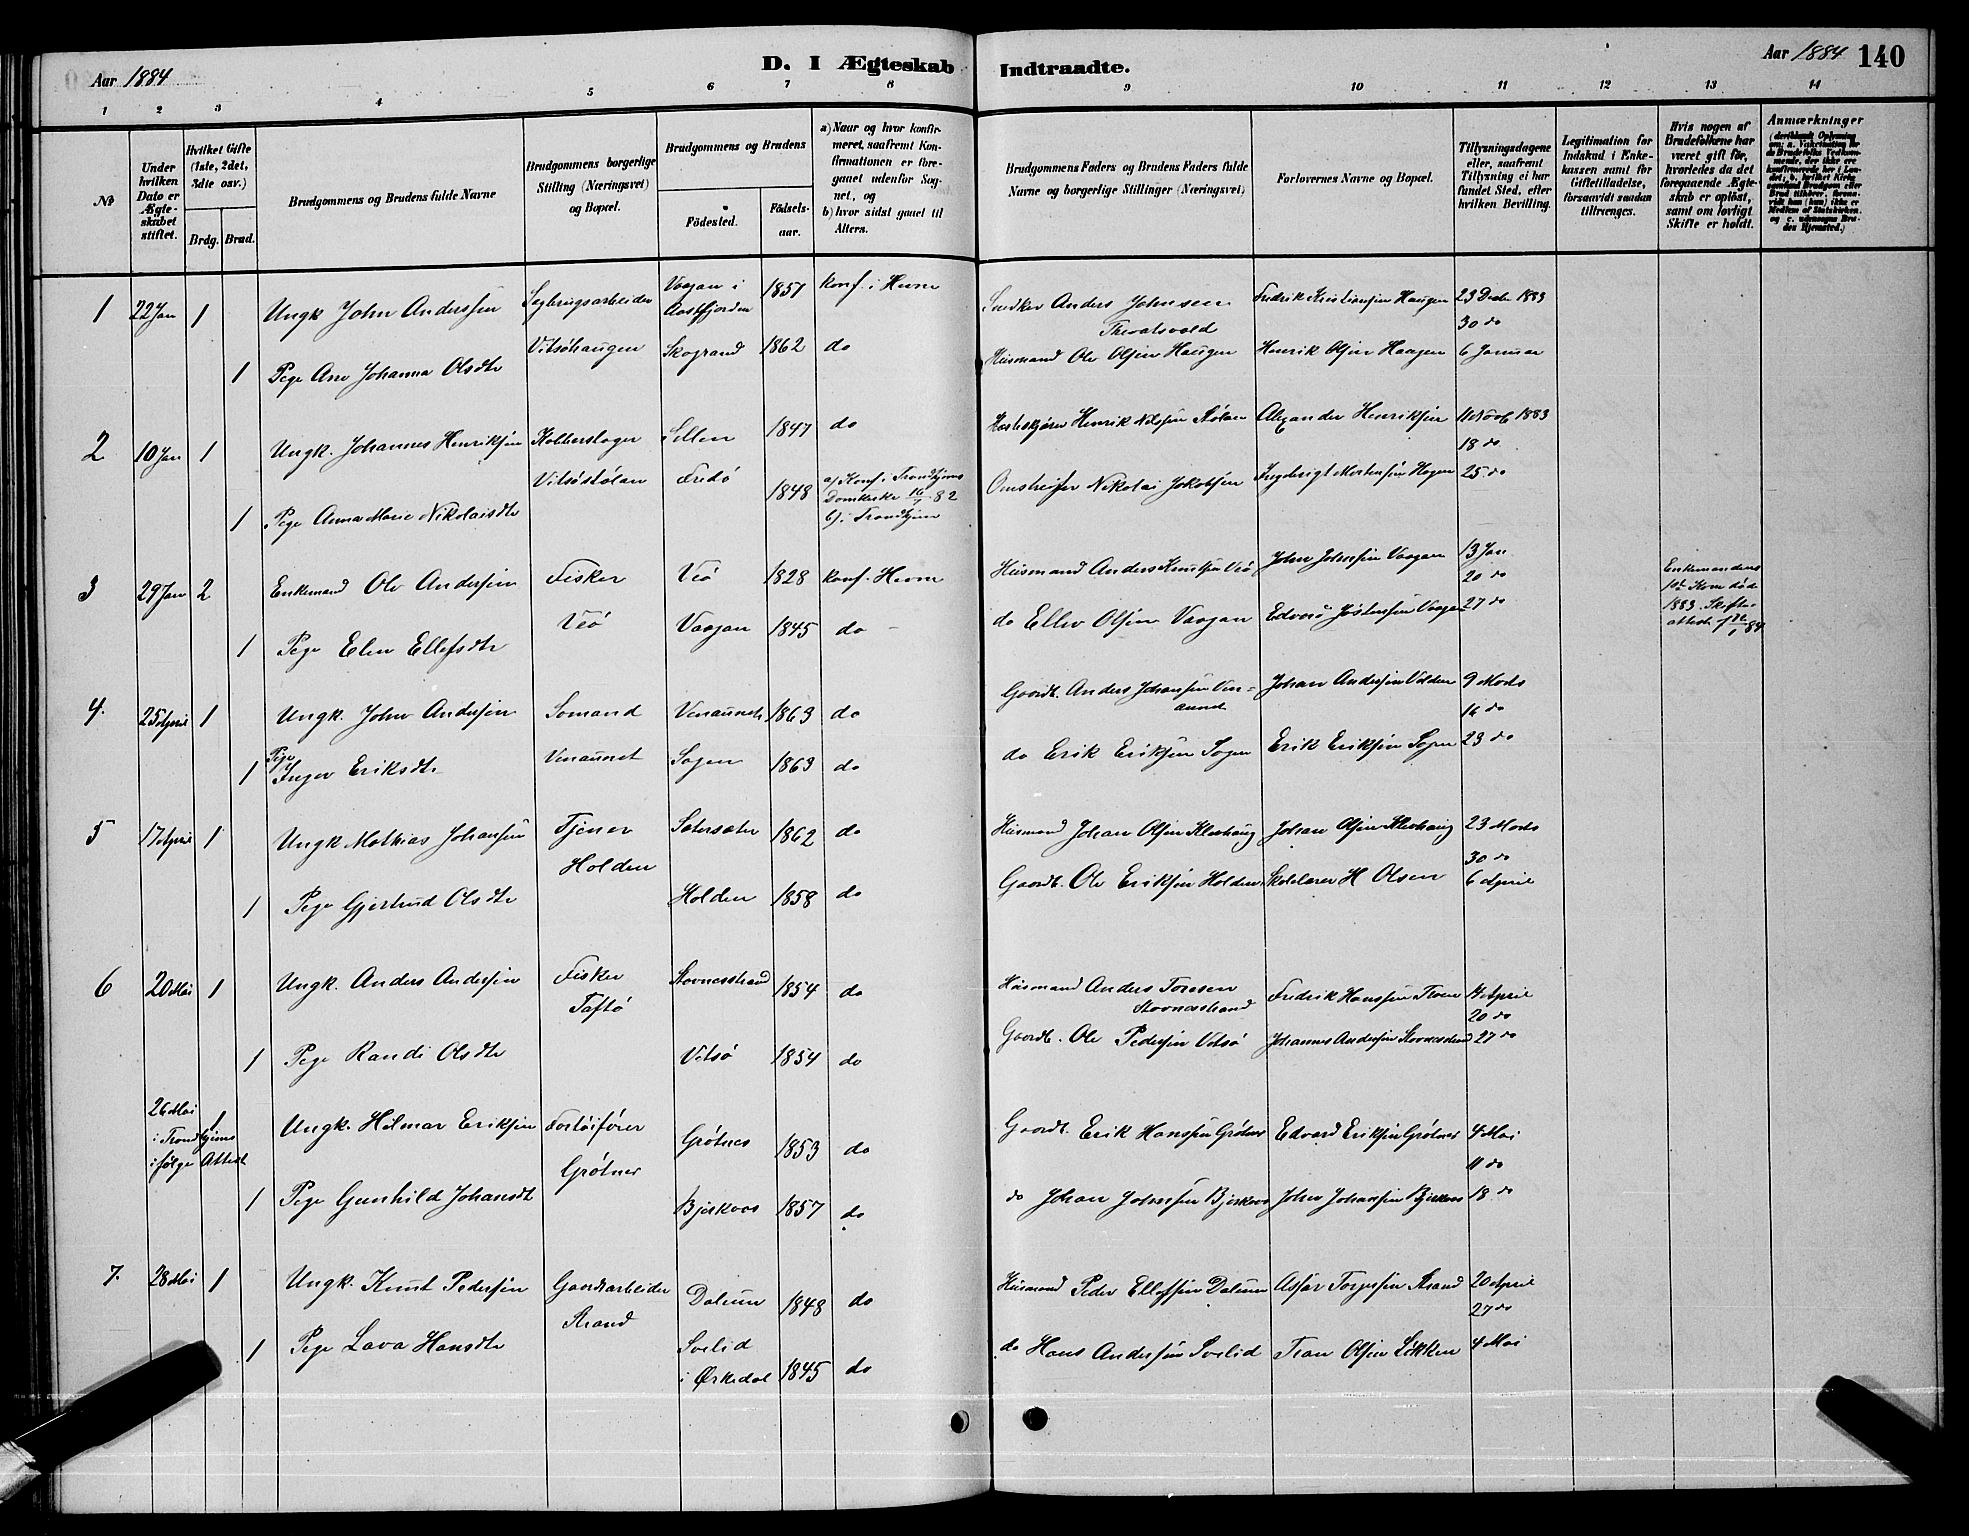 Aar 1884
D. I Ægteskab
Indtraadte.
Aar 1884 140
1 2 3 4 5 6 7 8 9 10 11 12 13 14
No
Under hvilken Dato er Ægteskabet stiftet.
Hvilket Gifte (1ste, 2det, 3die osv.)
Brdg. Brud.
Brudgommens og Brudens fulde Navne
Brudgommens borgerlige Stilling (Næringsvei) og Bopæl.
Brudgommens og Brudens
Fødested.
Fødselsaar.
a) Naar og hvor konfirmeret, saafremt Konfirmationen er foregaaet udenfor Sognet, og
b) hvor sidst gaaet til Alters.
Brudgommens Faders og Brudens Faders fulde Navne og borgerlige Stillinger (Næringsvei)
Forlovernes Navne og Bopæl.
Tillysningsdagene eller, saafremt Tillysning ei har fundet Sted, efter hvilken Bevilling.
Legitimation for Indskud i Enkekassen samt for Giftetilladelse, forsaavidt saadan tiltrænges.
Hvis nogen af Brudefolkene har været gift før, hvorledes da det foregaaende Ægteskab er opløst, samt om lovligt Skifte er holdt.
Anmærkninger
1 22 Jan 1 Ungk John Anderssen Sagbrugsarbeider Vaagan i Aastfjorden 1857 konf. i Hevne Snedker Anders Johnsen Fredrik Kristiansen Haugen 23 Decbr 1883
30 do
1 Pige Ane Johanna Olsdtr Vitsøhaugen Skogrand 1862 do Husmand Ole Olsen Haugen Henrik Olsen Haugen 6 Januar
2 10 Jan 1 Ungk. Johannes Henriksen 1847 do Henrik Nilssen Alexander Henriksen 11 Novb 1883
18 do
1 Pige Anna Marie Nikolaisdtr Vitsøstølan 1848 a) Konf. i Trondhjems Domkirke 16/7 82
b) i Trondhjem Nikolai Jakobsen Ingebrigt Mortensen Hagen 25 do
3 29 Jan 2 Enkemand Ole Andersen Fisker Veø 1828 konf. Hevne Husmand Anders Knutsen Veø John Johnsen Vaagan 13 Jan
20 do
Enkemandens 1ste Kone død 1883. Skifteattest
1 Pige Elen Ellefsdtr Veø Vaagan 1845 do do Ellev Olsen Vaagan Vaagan 27 do
4. 25 April 1 Ungk. John Andersen Sømand Venaunet 1863 do Gaardb. Anders Johansen Venaunet Johan Andersen Volden 9 Marts
16 do
1 Pige Inger Eriksdtr Venaunet Sagen 1863 do do Erik Eriksen Sagen Erik Eriksen Sagen 23 do
5 17 April 1 Ungk Mathias Johansen Tjener 1862 do Husmand Johan Olsen Klevhaug Johan Olsen Klevhaug 23 Marts
30 do
1 Pige Gjertrud Olsdtr Holden Holden 1858 do Gaardb. Ole Eriksen Holden Skolelærer H Olsen 6 April
6 20 Mai 1 Ungk. Anders Andersen Fisker Stovnesstrand 1854 do Husmand Anders Toresen Stovnesstrand Fredrik Hanssen Troen 14 April
20 do
1 Pige Randi Olsdtr Taftø Vitsø 1854 do Gaardb. Ole Pedersen Vitsø Johannes Andersen Stovnesstrand 27 do
26 Mai i Trondhjem ifølge Attest 1 Ungk. Hilmar Eriksen Grøtnes 1853 do Gaardb. Erik Hanssen Grøtnes Edvard Eriksen Grøtnes 4 Mai
11 do
1 Pige Gunhild Johansdtr Grøtnes Bjerkaas 1857 do do Johan Johnsen Bjerkaas John Johansen Bjerkaas 18 do
7. 28 Mai 1 Ungk. Knut Pedersen Gaardsarbeider Dalum 1848 do Husmand Peder Ellefsen Dalum Torgersen Strand 20 April
27 do
1 Pige Lava Hansdtr Strand Svelid i Ørkedal 1845 do do Hans Andersen Svelid Olsen Løkken 4 Mai